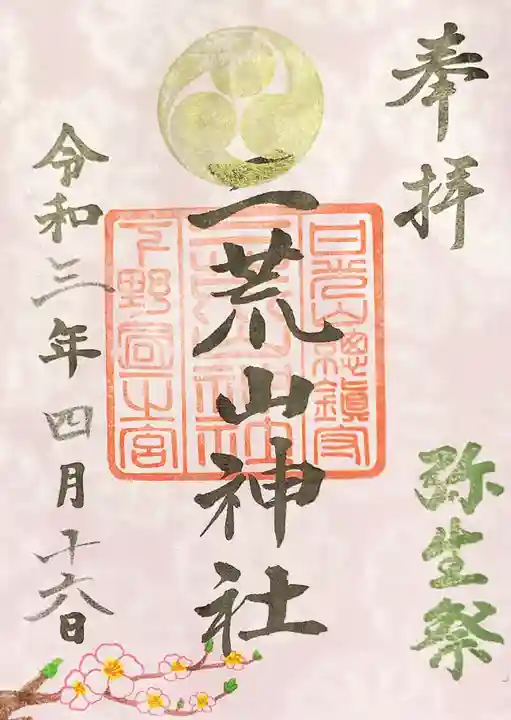 奉拝
弥生祭
二荒山神社
日光山總鎮守
二荒山神社
下野国一之宮
令和三年四月十六日